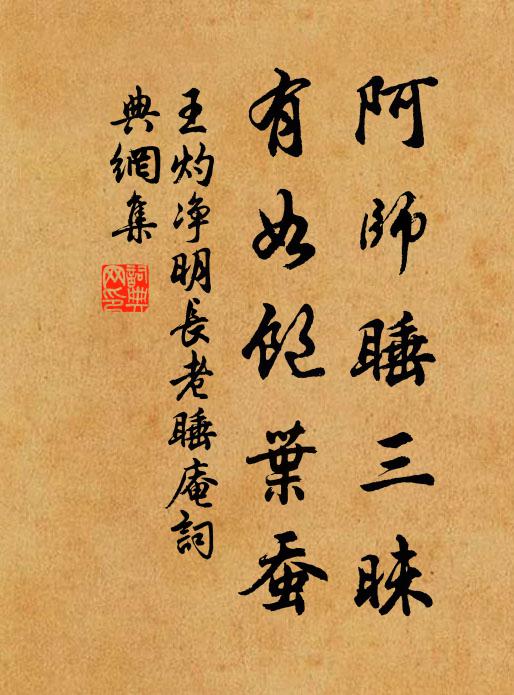 阿師睡三昧
有如飽葉蚕
王灼净明長老睡庵詞
典網集
詞典網印